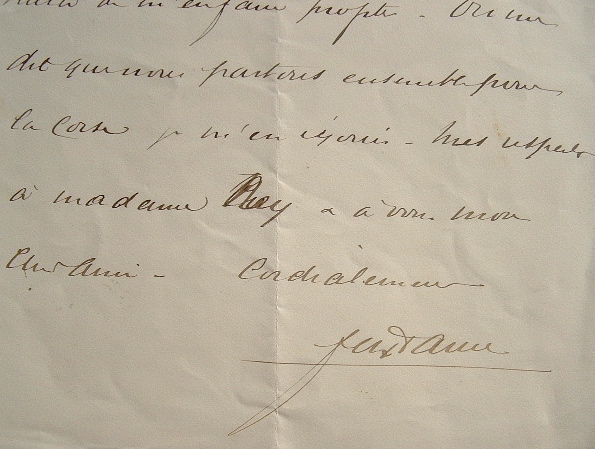 de m'enfuir profite. On me
dit que nous partons ensemble pour
la Corse je m'en réjouis - mes respects
à madame Rey & à vous mon
cher Ami - Cordialement